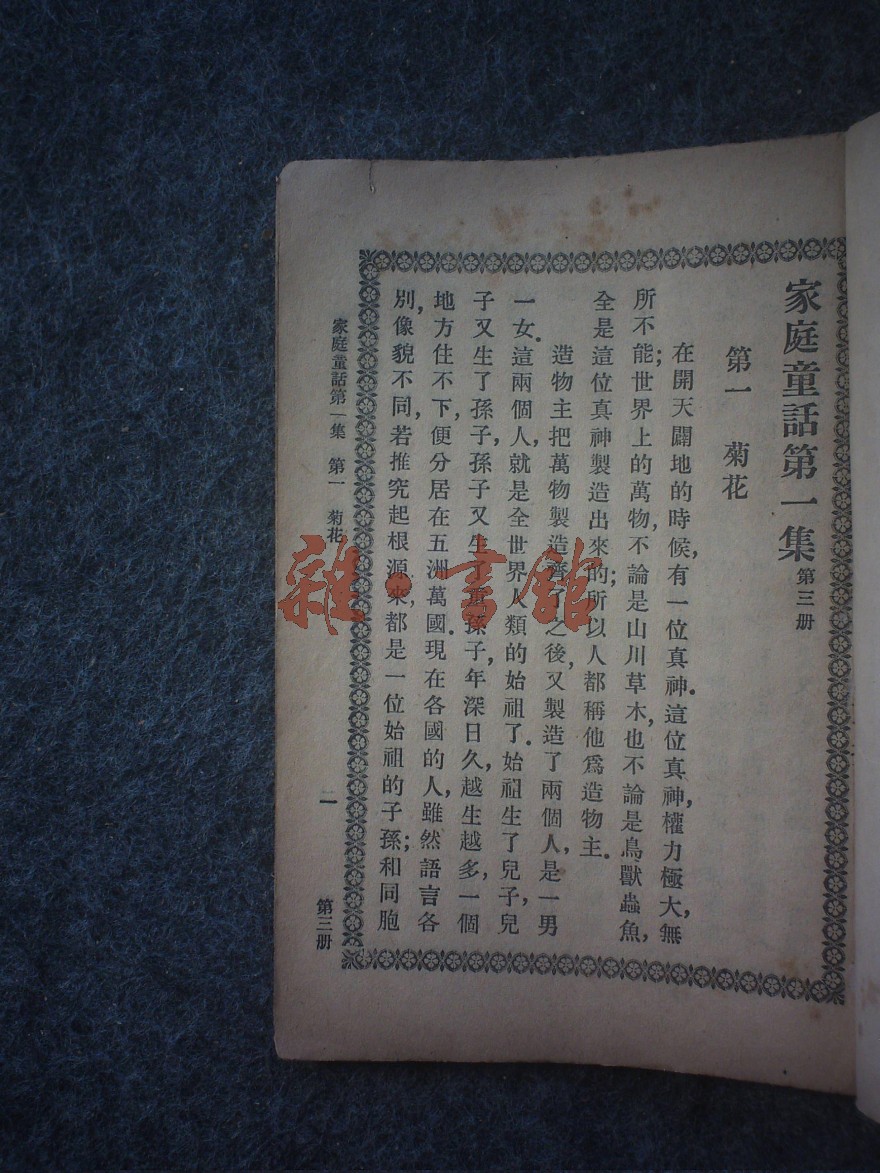 家庭童話第一集 第三册
第一 菊花
在開天闢地的時候,有一位真神.這位真神,權力極大,無
所不能;世界上的萬物,不論是山川草木,也不論是鳥獸蟲魚,
全是這位真神製造出來的;所以人都稱他爲造物主.
造物主把萬物製造齊了之後,又製造了兩個人,是一男
一女.這兩個人,就是全世界人類的始祖了.始祖生了兒子,兒
子又生了孫子,孫子又生了重孫子,年深日久,越生越多,一個
地方住不下,便分居在五洲萬國.現在各國的人,雖然語言各
別,像貌不同,若推究起根源來,都是一位始祖的子孫;和同胞
家庭童話第一集 第一 菊花 二 第三册
雜·書館